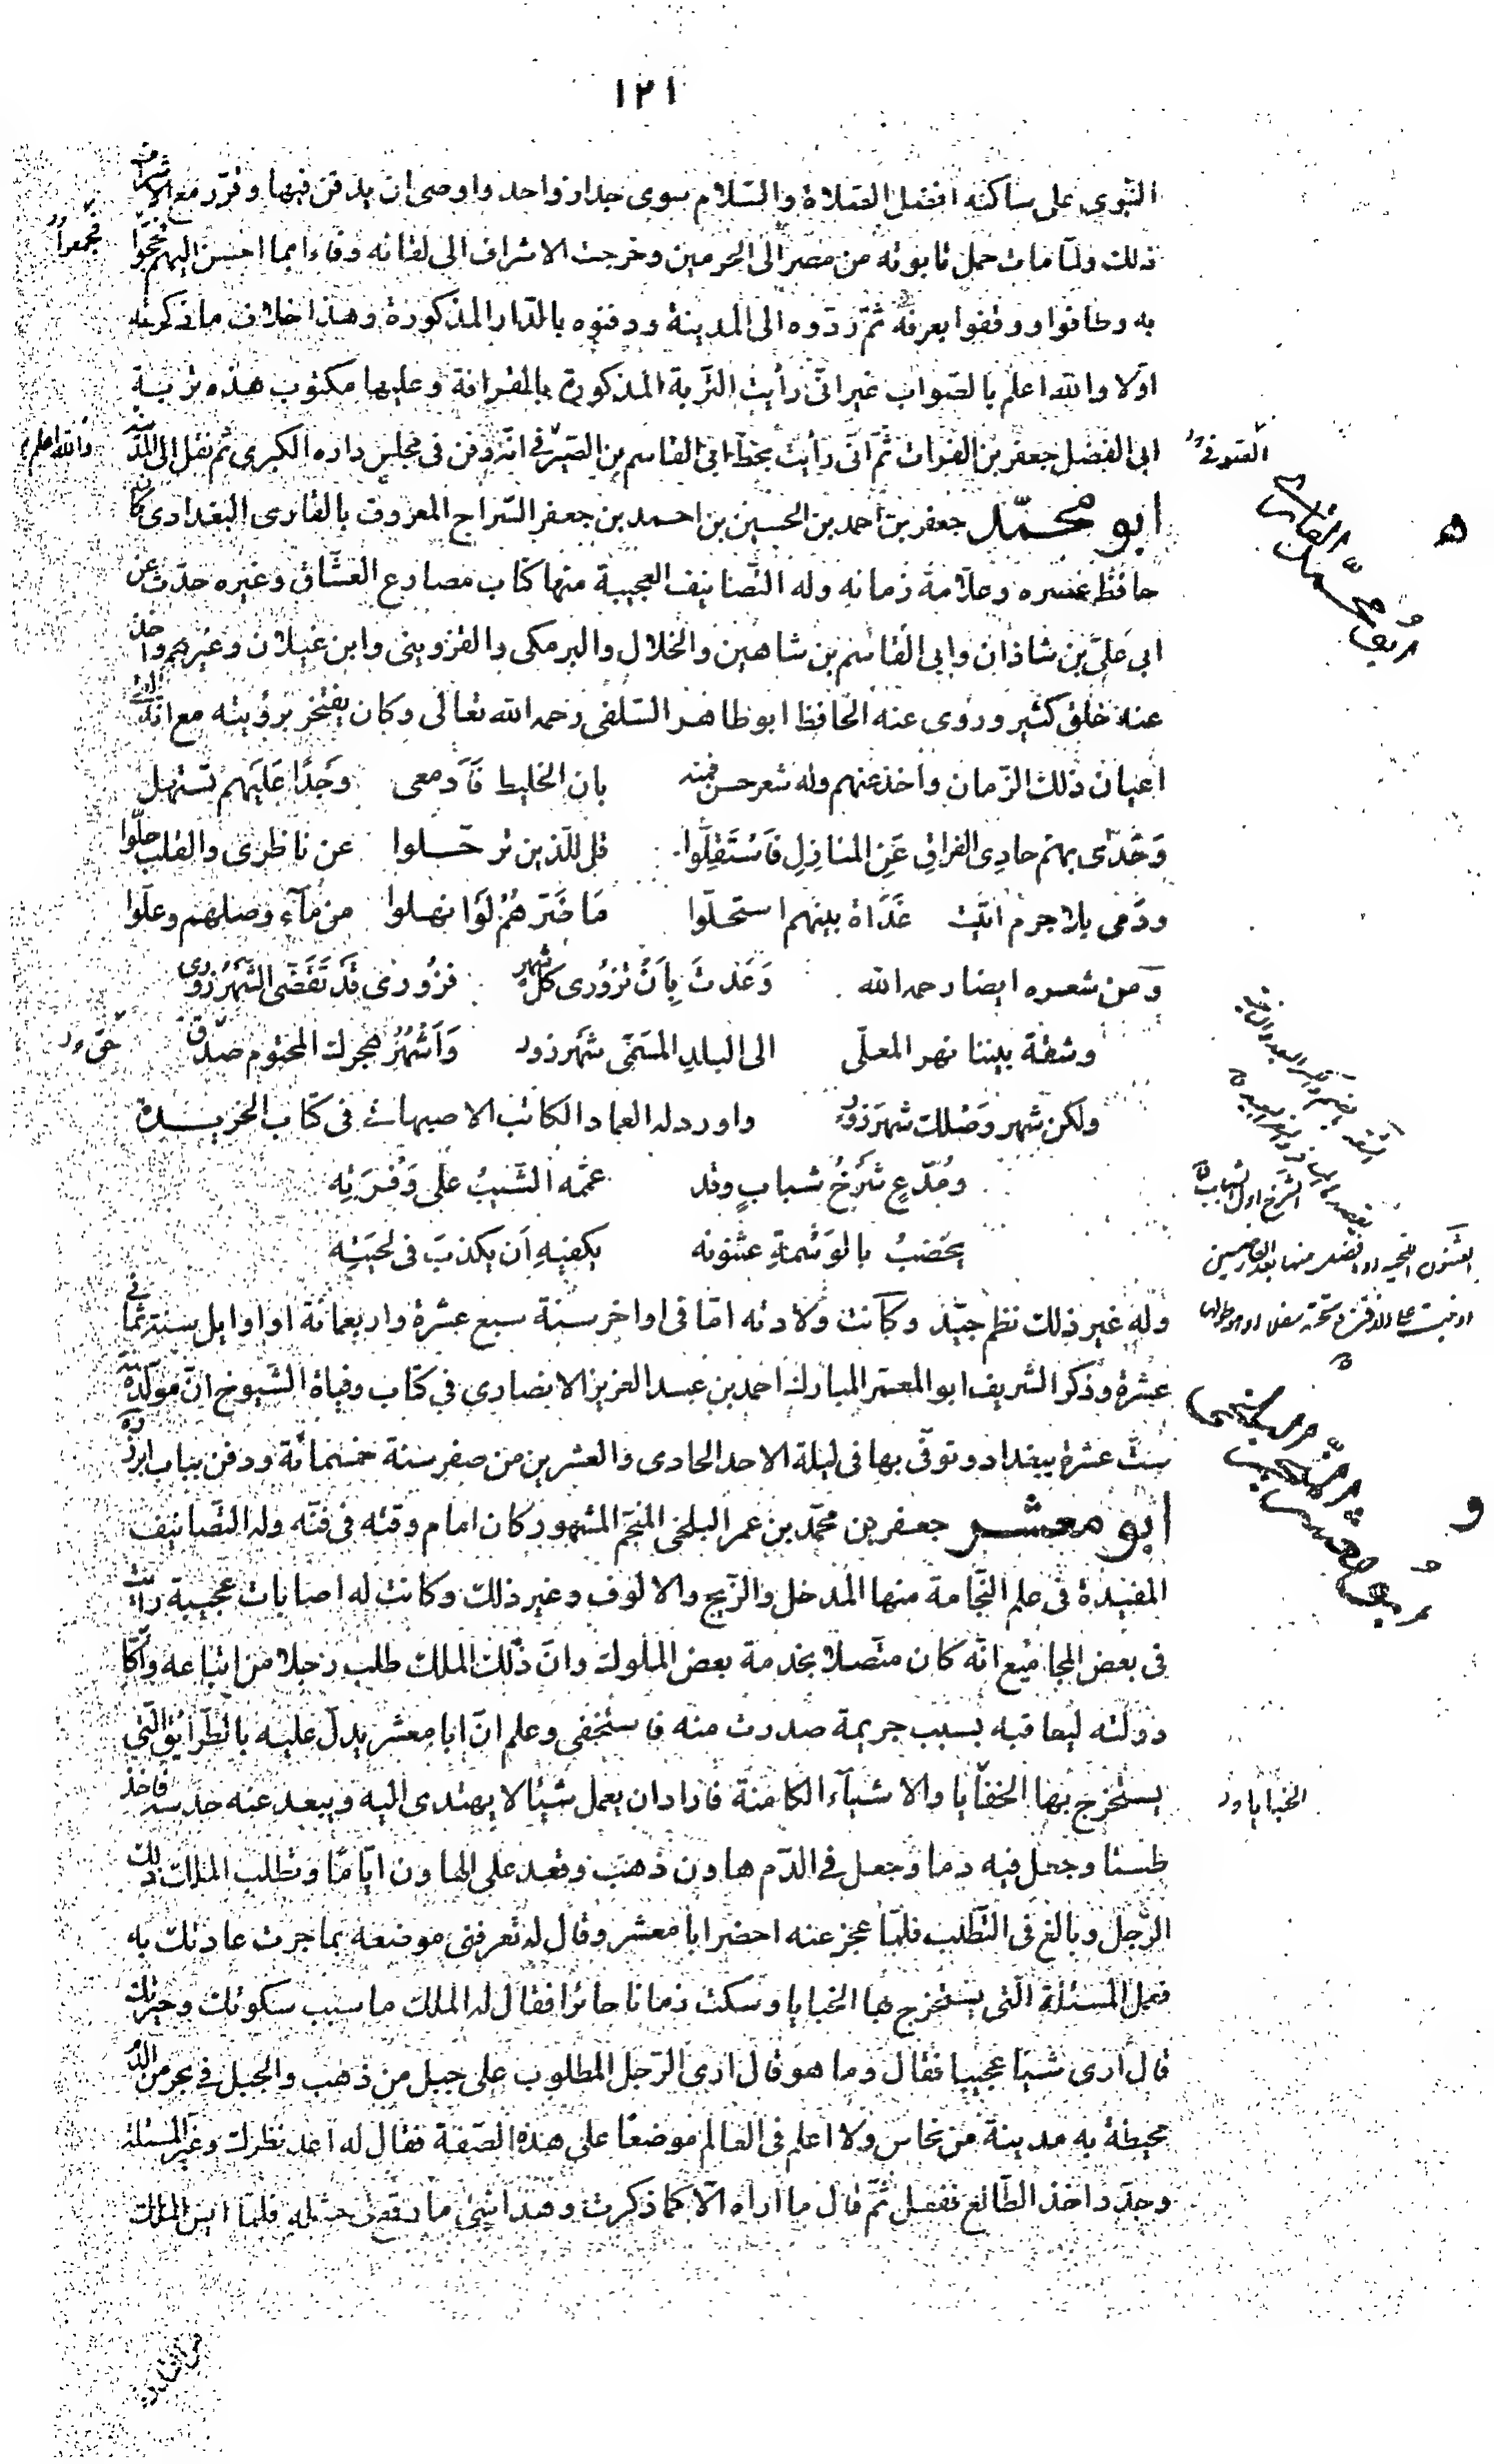 ١٢١
النبوى على ساكنه افضل الصّلاة والسّلام سوى جدار واحد واوصى ان يدفن فيها وقرّر مع الاشراف
ذلك ولمّا مات حمل تابوته من مصر الى الحرمين وخرجت الاشراف الى لقائه وفاء بما احسن اليهم فحجّوا
به وطافوا ووقفوا بعرفة ثمّ ردّوه الى المدينة ودفنوه بالدّار المذكورة وهذا خلاف ما ذكرته
اوّلا والله اعلم بالصّواب غير انّى رأيت التّربة المذكورة بالقرافة وعليها مكتوب هذه تربة
ابى الفضل جعفر بن الفرات ثمّ انّى رأيت بخطّ ابى القاسم بن الصّيرفى انّه دفن فى مجلس داره الكبرى ثم نقل الى المدينة
والله اعلم
ابو محمّد جعفر بن احمد بن الحسين بن احمد بن جعفر السّراج المعروف بالقارى البغدادى كان
حافظ عصره وعلّامة زمانه وله التّصانيف العجيبة منها كتاب مصارع العشّاق وغيره حدّث عن
ابى علىّ بن شاذان وابى القاسم بن شاهين والخلال والبرمكى والقزوينى وابن غيلان وغيرهم واخذ
عنه خلق كثير وروى عنه الحافظ ابو طاهر السّلفى رحمه الله تعالى وكان يفتخر برؤيته مع انّه لقى
اعيان ذلك الزّمان واخذ عنهم وله شعر حسن فمنه بان الخليط فادمعى وجدًا عليهم تستهل
وَحَدى بهم حادِى الفراقِ عَنِ المنازِلِ فَاسْتَقِلّوا قل للّذين ترحّلوا عن ناظرى والقلب حلّوا
ودمى بلا جرم اتيت غَدَاة بينهم استحلّوا مَا ضَرّهُمْ لَوْ انهلوا من مآء وصلهم وعلّوا
ومن شعره ايضا رحمه الله وَعَدْتَ بِاَنْ تزُورِى كلّ شهر فزُورى قَدْ تَقَضّى الشّهْرُ زُورى
وشقّة بيننا نهر المعلّى الى البلدِ المسَمّى شهرزور وَاَشْهُرُ هجرك المحتوم صدق
ولكن شهر وَصْلك شهرَزُورُ واورد له العماد الكاتب الاصبهانى فى كتاب الخريدة
ومُدّعٍ شَرْخَ شبابٍ وقد عمّمه الشّيبُ على وَفْرَتِه
يخضبُ بالوَسْمةِ عثنونه يكفيهِ اَن يكذبَ فى لحيَتِه
وله غير ذلك نظم جيّد وكانت ولادته امّا فى اواخر سنة سبع عشرة واربعمائة او اوايل سنة ثمانى
عشرة وذكر الشريف ابو المعمّر المبارك احمد بن عبد العزيز الانصارى فى كتاب وفياة الشّيوخ انّ مولده سنة
ستّ عشرة ببغداد وتوفّى بها فى ليلة الاحد الحادى والعشرين من صفر سنة خمسمائة ودفن بباب ابرز
ابو معشر جعفر بن محمّد بن عمر البلخى المنجّم المشهور كان امام وقته فى فنّه وله التّصانيف
المفيدة فى علم النّجامة منها المدخل والزّيج والالوف وغير ذلك وكانت له اصابات عجيبة رأيت
فى بعض المجاميع انّه كان متّصلا بخدمة بعض الملوك وانّ ذلك الملك طلب رجلا من اتباعه واكابر
دولته ليعاقبه بسبب جريمة صدرت منه فاستخفى وعلم انّ ابا معشر يدلّ عليه بالطّرايق الّتى
يستخرج بها الخفايا والاشيآء الكامنة فاراد ان يعمل شيئا لا يهتدى اليه ويبعد عنه حدسه فاخذ
الخبايا
طستا وجعل فيه دما وجعل فى الدّم هاون ذهب وقعد على الهاون ايّامًا وتطلّب الملك ذلك
الرّجل وبالغ فى التّطلّب فلمّا عجز عنه احضر ابا معشر وقال له تعرفنى موضعه بما جرت عادتك به
فعمل المسئلة الّتى يستخرج بها الخبايا وسكت زمانا حائرا فقال له الملك ما سبب سكوتك وحيرتك
قال ارى شيئا عجيبا فقال وما هو قال ارى الرّجل المطلوب على جبل من ذهب والجبل فى بحر من الدّم
محيطة به مدينة من نحاس ولا اعلم فى العالم موضعًا على هذه الصّفة فقال له اعد نظرك وغيّر المسئلة
وجدّد اخذ الطّالع ففعل ثمّ قال ما اراه الّا كما ذكرت وهذا شئ ما وقع لى مثله فلمّا ايس الملك